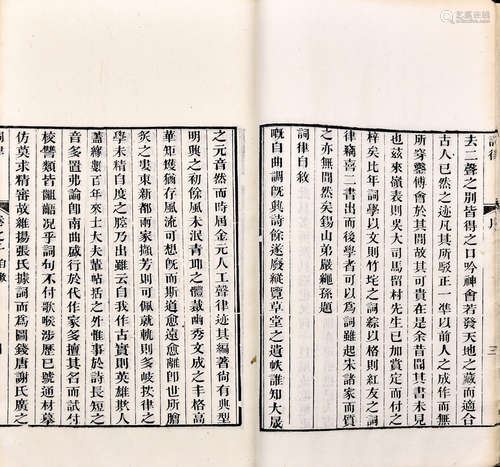 詞律
序
三
去二聲之別皆得之口吟神會若發天地之藏而適合
古人已然之迹凡其所駁正一準以前人之成作而無
所穿鑿傅會於其間故其可貴在是余昔聞其書未見
也茲來嶺表則吳大司馬留村先生已加賞定而付之
梓矣比年詞學以文則竹垞之詞綜以格則紅友之詞
律竊喜二書出而後學者可以為詞雖起宋諸家而質
之亦無間然矣錫山弟嚴繩孫題
詞律自敘
嘅自曲調既興詩餘遂廢縱覽草堂之遺帙誰知大晟
之元音然而時屆金元人工聲律迹其編著尚有典型
明興之初餘風未泯青邱之體裁幽秀文成之丰格高
華矩矱猶存風流可想既而斯道愈遠愈離即世所膾
炙之婁東新都兩家擷芳則可佩就軌則多岐按律之
學未精自度之腔乃出雖云自我作古實則英雄欺人
蓋繆數百年來士大夫輩帖括之外惟事於詩長短之
音多置弗論即南曲盛行於代作家多擅其名而試付
校讐類皆齟齬況乎詞句不付歌喉涉歷已號通材摹
仿莫求精審故維揚張氏據詞而為圖錢唐謝氏廣之
自敘